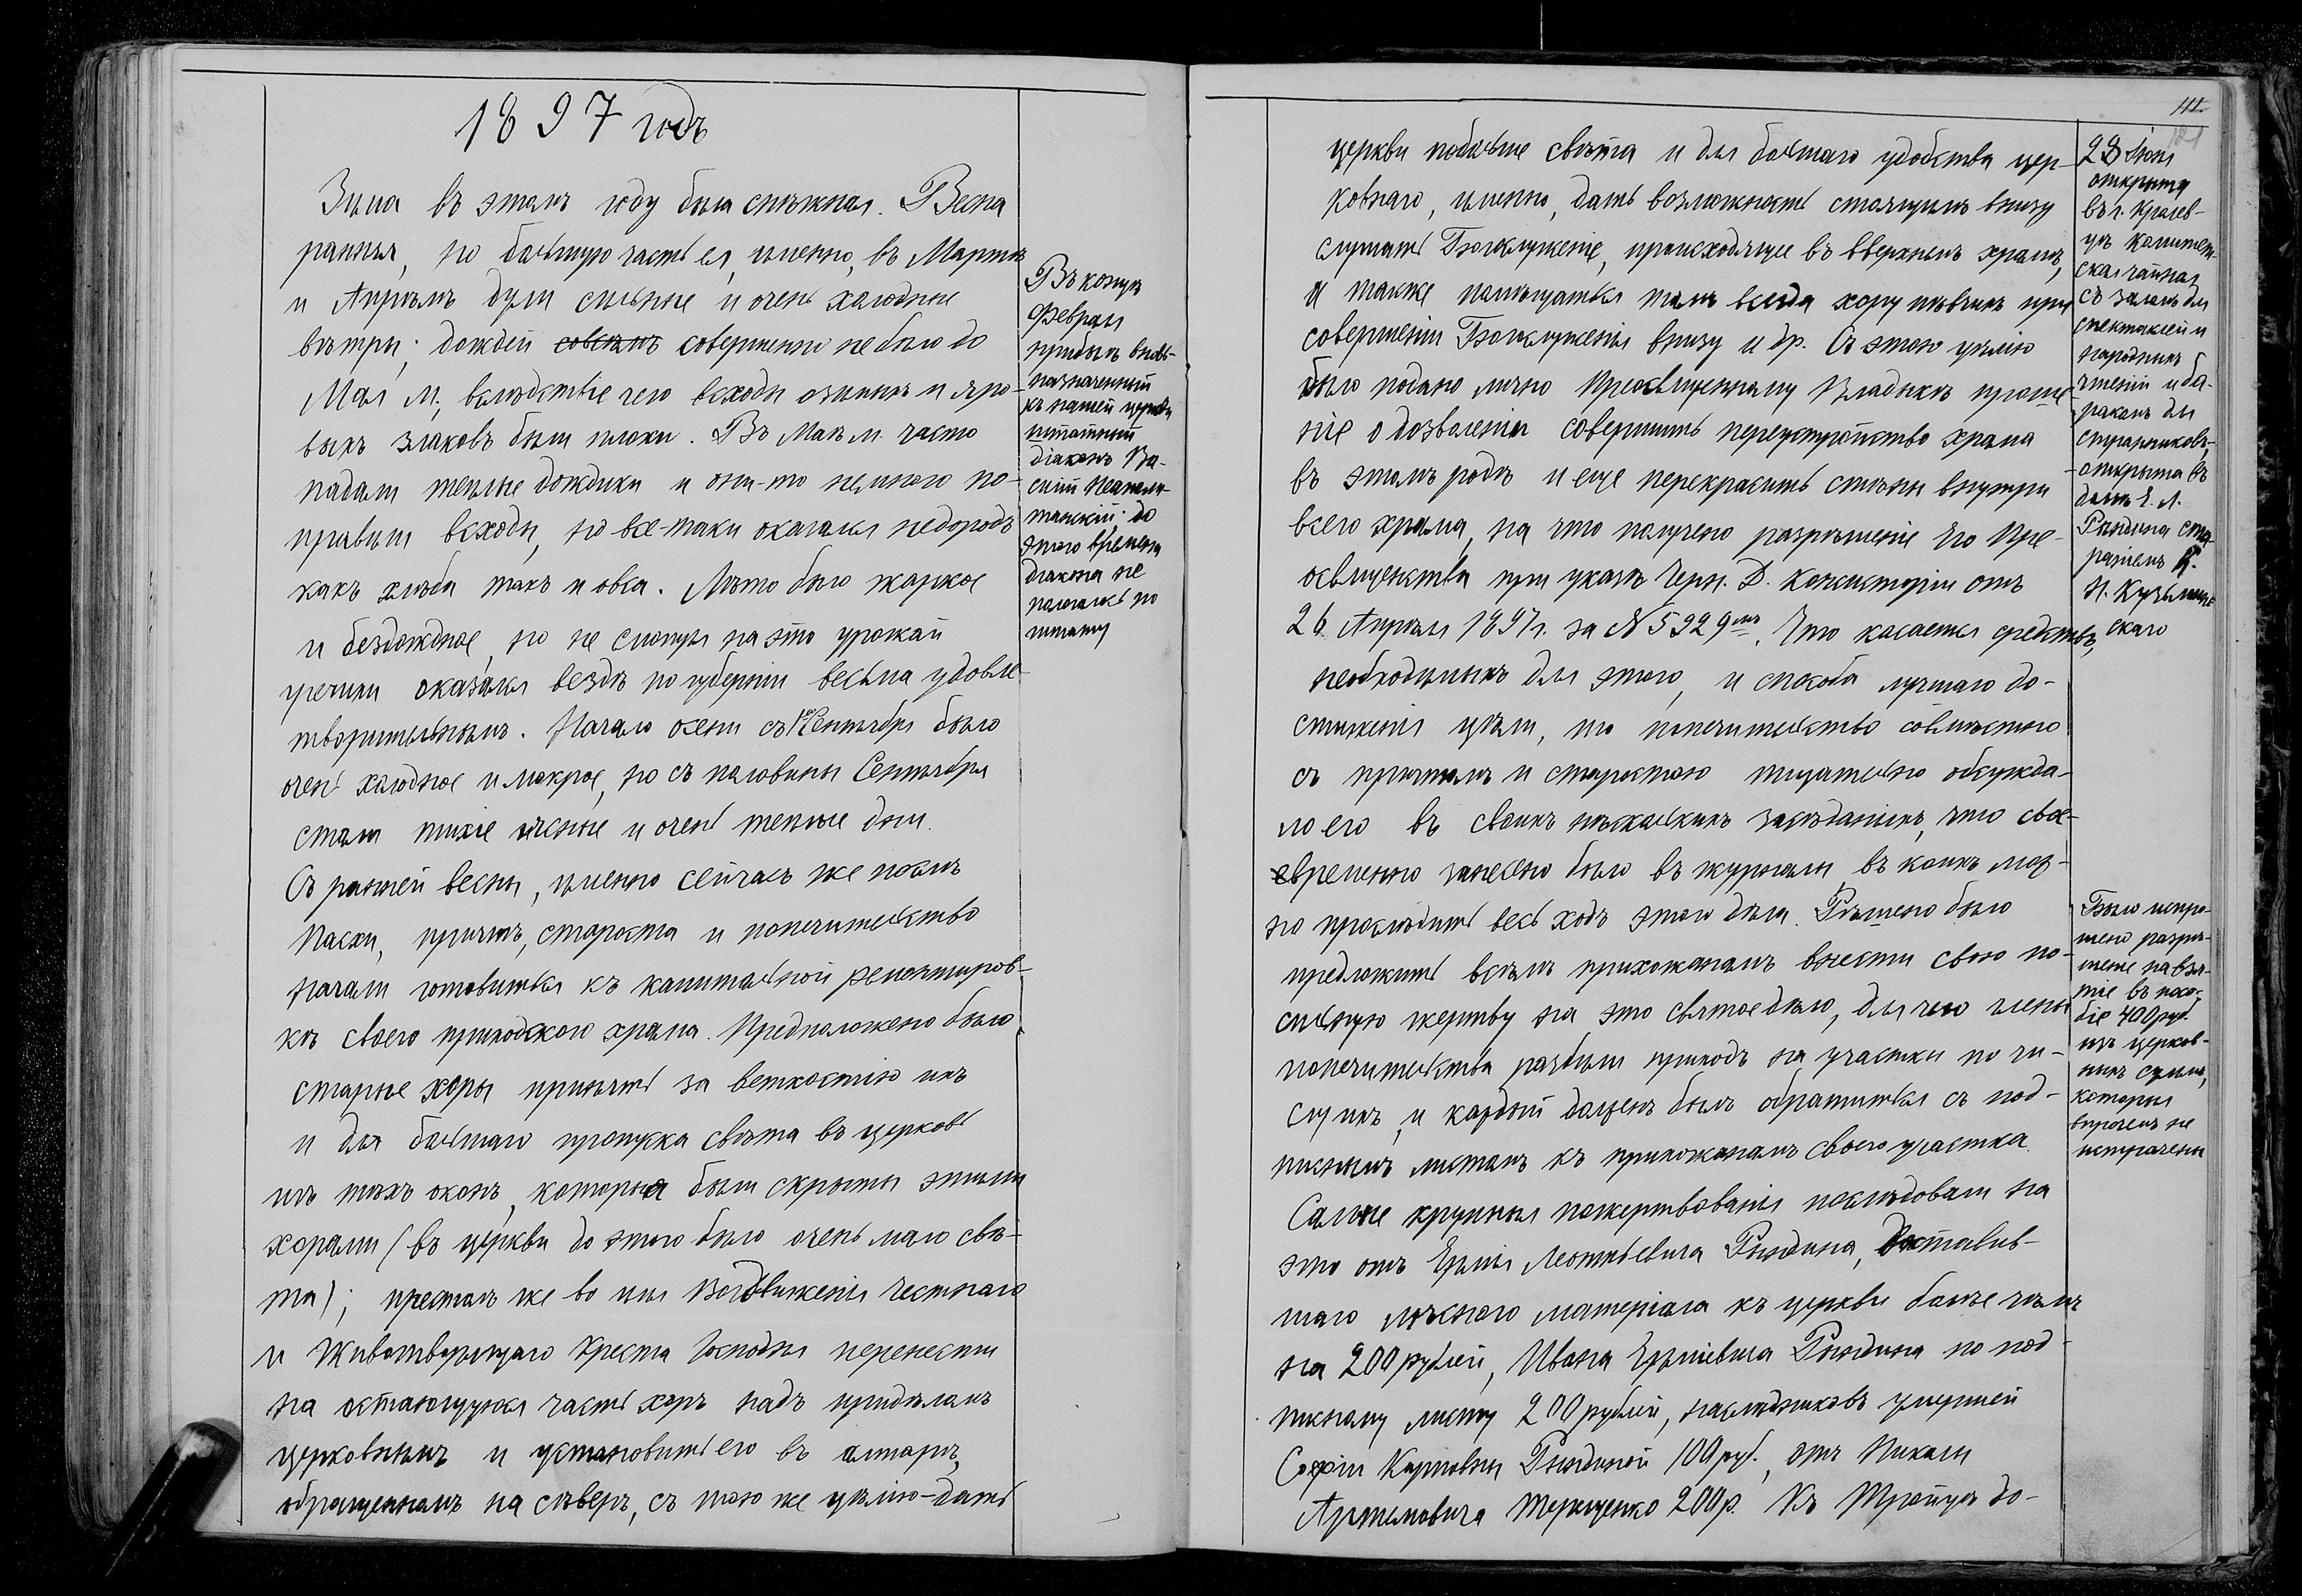 1897 годъ
Зима въ этомъ году была снѣжная. Весна
ранняя, но большую часть ея, именно, въ Мартѣ
и Апрѣлѣ дули сильные и очень холодные
вѣтры; дождей совсѣмъ совершенно не было до
Мая м., вслѣдствіе чего всходы озимыхъ и яро-
выхъ злаковъ были плохи. Въ Маѣ м. часто
падали теплые дождики и они-то немного по-
правили всходы, но все-таки оказался недородъ
какъ хлѣба такъ и овса. Лѣто было жаркое
и бездождное, но не смотря на это урожай
гречихи оказался вездѣ по губерніи весьма удовле-
творительнымъ. Начало осени съ 1го Сентября было
очень холодное и мокрое, но съ половины Сентября
стали тихіе ясные и очень теплые дни.
Съ ранней весны, именно сейчасъ же послѣ
Пасхи, причтъ, староста и попечительство
начали готовиться къ капитальной ремонтиров-
кѣ своего приходского храма. Предположено было
старые хоры принять за ветхостію ихъ
и для большаго пропуска свѣта въ церковь
изъ тѣхъ оконъ, которыя были скрыты этими
хорами (въ церкви до этого было очень мало свѣ-
та); престолъ же во имя Воздвиженія Честнаго
и Животворящаго Креста Господня перенести
на остающуюся часть хоръ надъ придѣломъ
церковнымъ и установить его въ алтарѣ,
обращенномъ на сѣверъ, съ тою же цѣлію-дать
Въ концѣ
Февраля
прибылъ вновь-
назначенный
къ нашей церкви
штатный
діаконъ Ва-
силій Неаполи-
танскій; до
этого времени
діакона не
полагалось по
штату
111.
церкви побольше свѣта и для большаго удобства цер-
ковнаго, именно, дать возможность стоящимъ внизу
слушать Богослуженіе, происходящее въ верхнемъ храмѣ,
а также помѣщаться тамъ всегда хору пѣвчихъ при
совершеніи Богослуженія внизу и др. Съ этою цѣлію
было подано лично Преосвященному Владыкѣ проше-
ніе о дозволеніи совершить переустройство храма
въ этомъ родѣ и еще перекрасить стѣны внутри
всего храма, на что получено разрѣшеніе Его Пре-
освященства при указѣ Черн. Д. Консисторіи отъ
26 Апрѣля 1897 г. за № 5929мъ. Что касается средствъ,
необходимыхъ для этого, и способа лучшаго до-
стиженія цѣли, то попечительство совмѣстно
съ причтомъ и старостою тщательно обсужда-
ло его въ своихъ нѣсколькихъ засѣданіяхъ, что сво-
евременно занесено было въ журналы въ коихъ мож-
но прослѣдить весь ходъ этого дѣла. Рѣшено было
предложить всѣмъ прихожанамъ внести свою по-
сильную жертву на это святое дѣло, для чего члены
попечительства разбили приходъ на участки по чи-
слу ихъ, и каждый долженъ былъ обратиться съ под-
писнымъ листомъ къ прихожанамъ своего участка.
Самые крупныя пожертвованія послѣдовали на
это отъ Ермія Леонтьевича Рындина, доставив-
шаго лѣсного матеріала къ церкви болѣе чѣмъ
на 200 рублей, Ивана Ерміевича Рындина по под-
писному листу 200 рублей, наслѣдниковъ умершей
Софіи Карповны Рындиной 100 руб., отъ Николы
Артемовича Терещенко 200 р. Къ Троицѣ до-
открыта
въ г. Кролев-
цѣ
чайная
съ заломъ для
спектаклей и
народныхъ
чтеній и ба-
ракомъ для
странниковъ,
открыта въ
домѣ Е. Л.
Рындина ста-
раніемъ
Н. Кузьмин-
скаго
Было испро-
шено разрѣ-
шеніе на взя-
тіе въ посо-
біе 400 руб.
изъ церков-
ныхъ суммъ,
которыя
впрочемъ не
истрачены